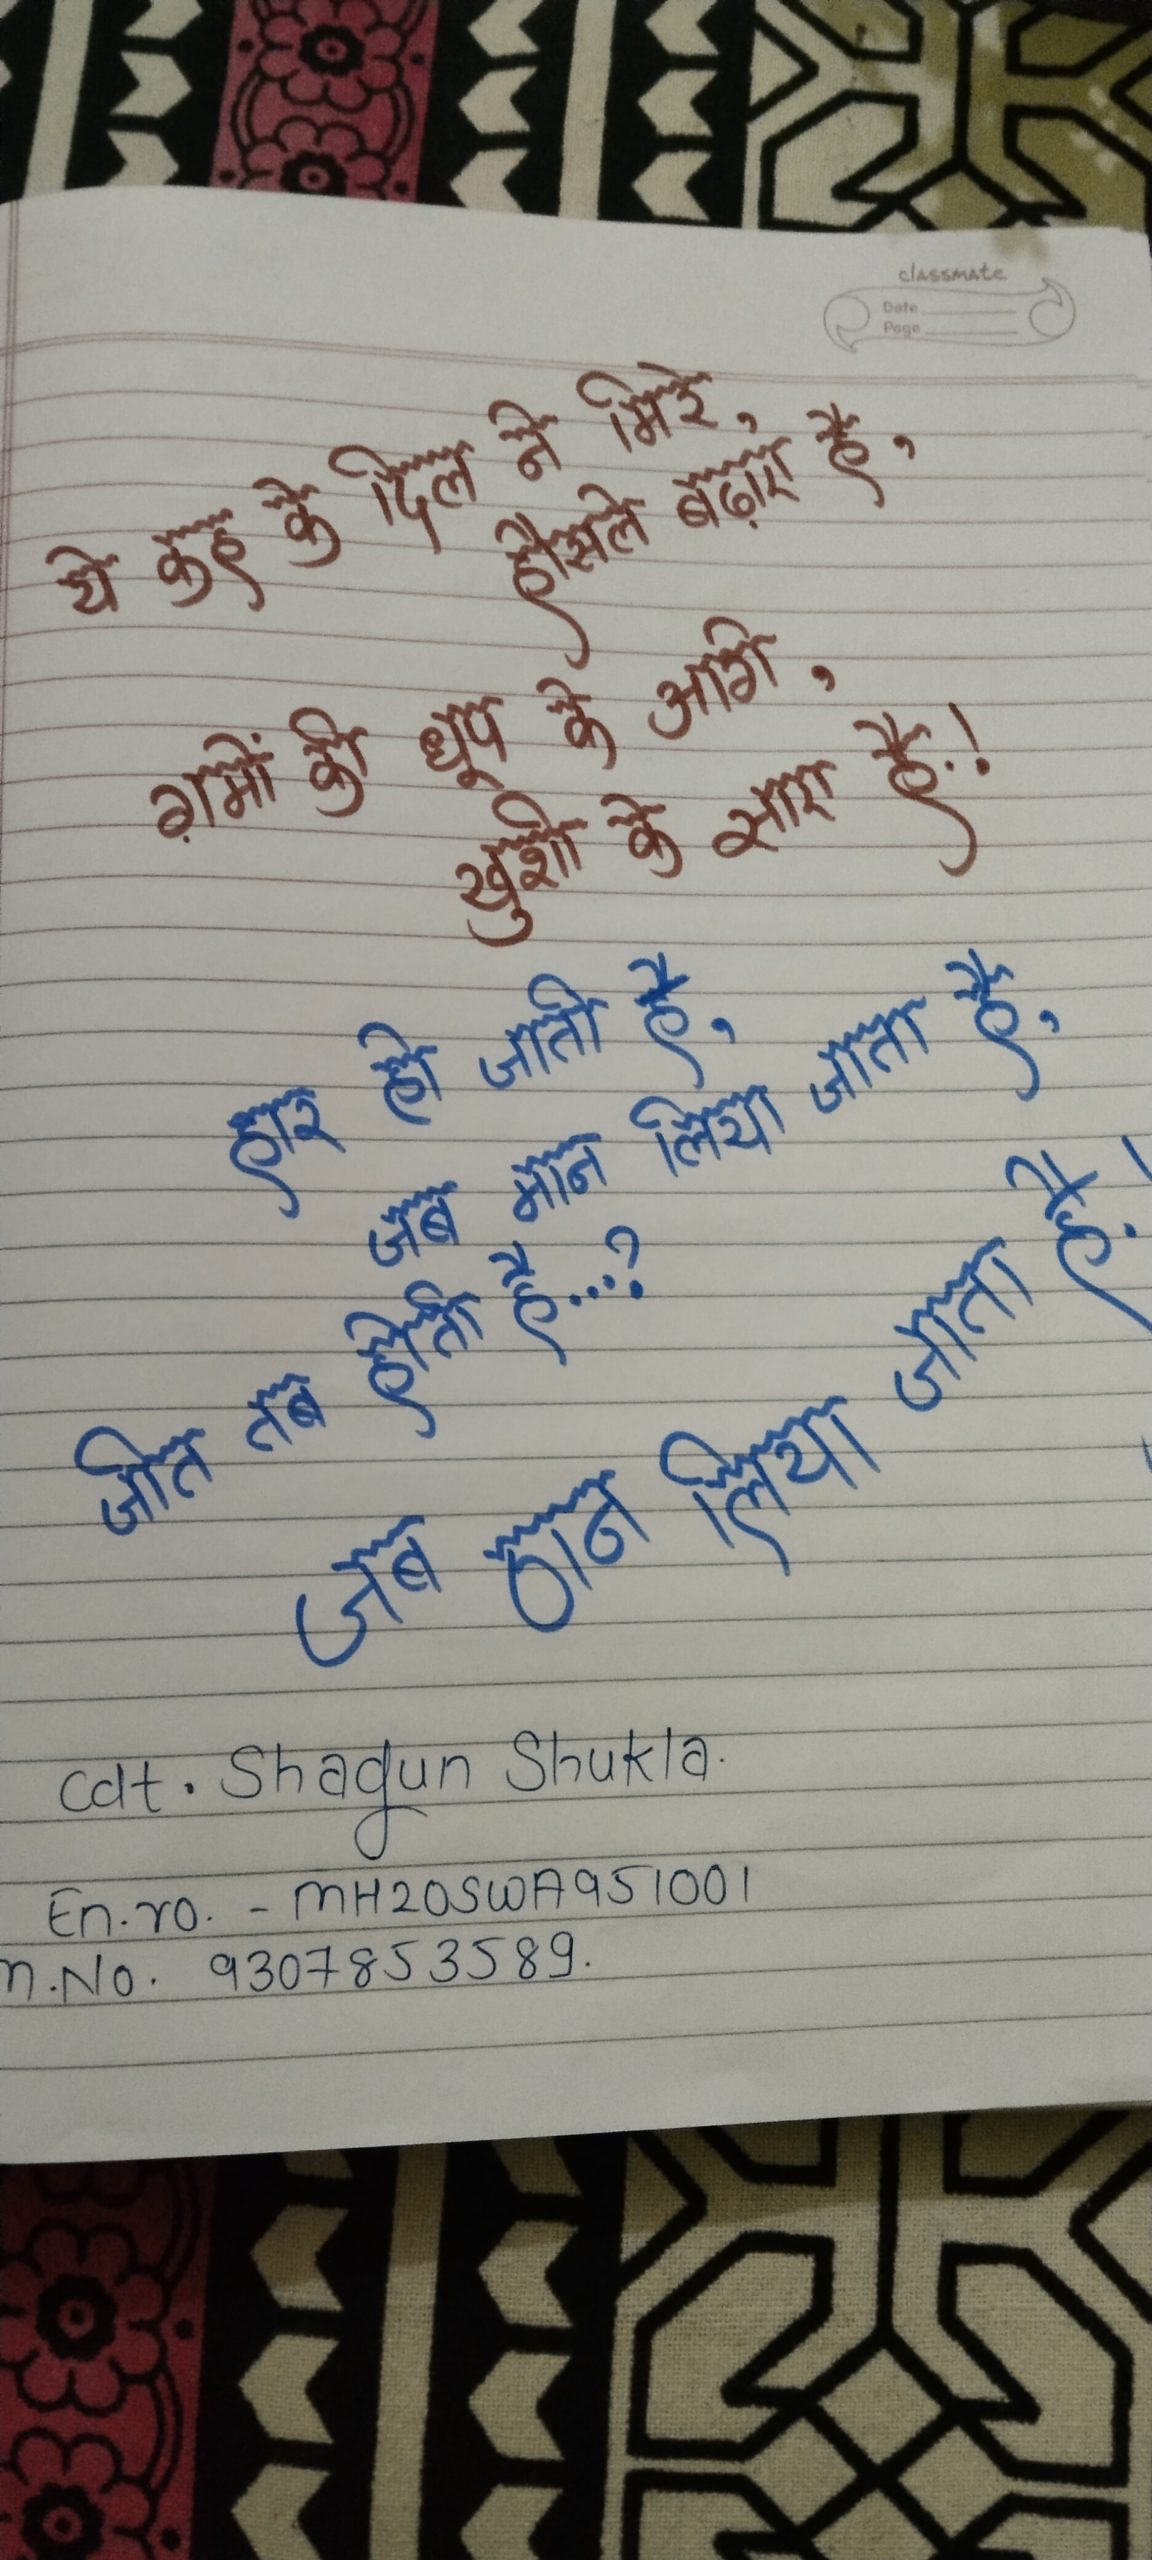 classmate
Date
Page
ये कह के दिल ने मिरे,
हौसले बढ़ाए हैं,
ग़मों की धूप के आगे,
खुशी के साए हैं.!
हार हो जाती है,
जब मान लिया जाता है,
जीत तब होती है...?
जब ठान लिया जाता है.!
Cdt. Shagun Shukla.
En.ro. - MH20SWA951001
m.No. 9307853589.